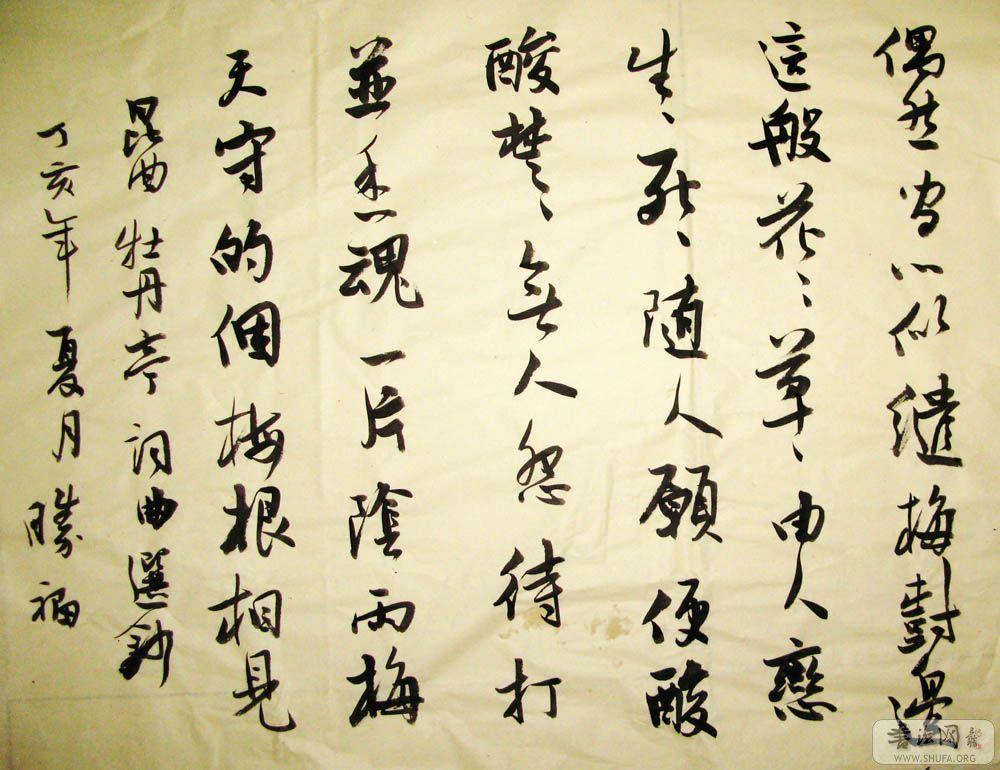 偶然間心似繾梅樹邊
這般花〻草〻由人戀
生〻死〻隨人願便酸
酸楚〻無人怨待打
並香魂一片陰雨梅
天守的個梅根相見
昆曲牡丹亭詞曲選鈔
丁亥年夏月勝福
書法网
WWW.SHUFA.ORG